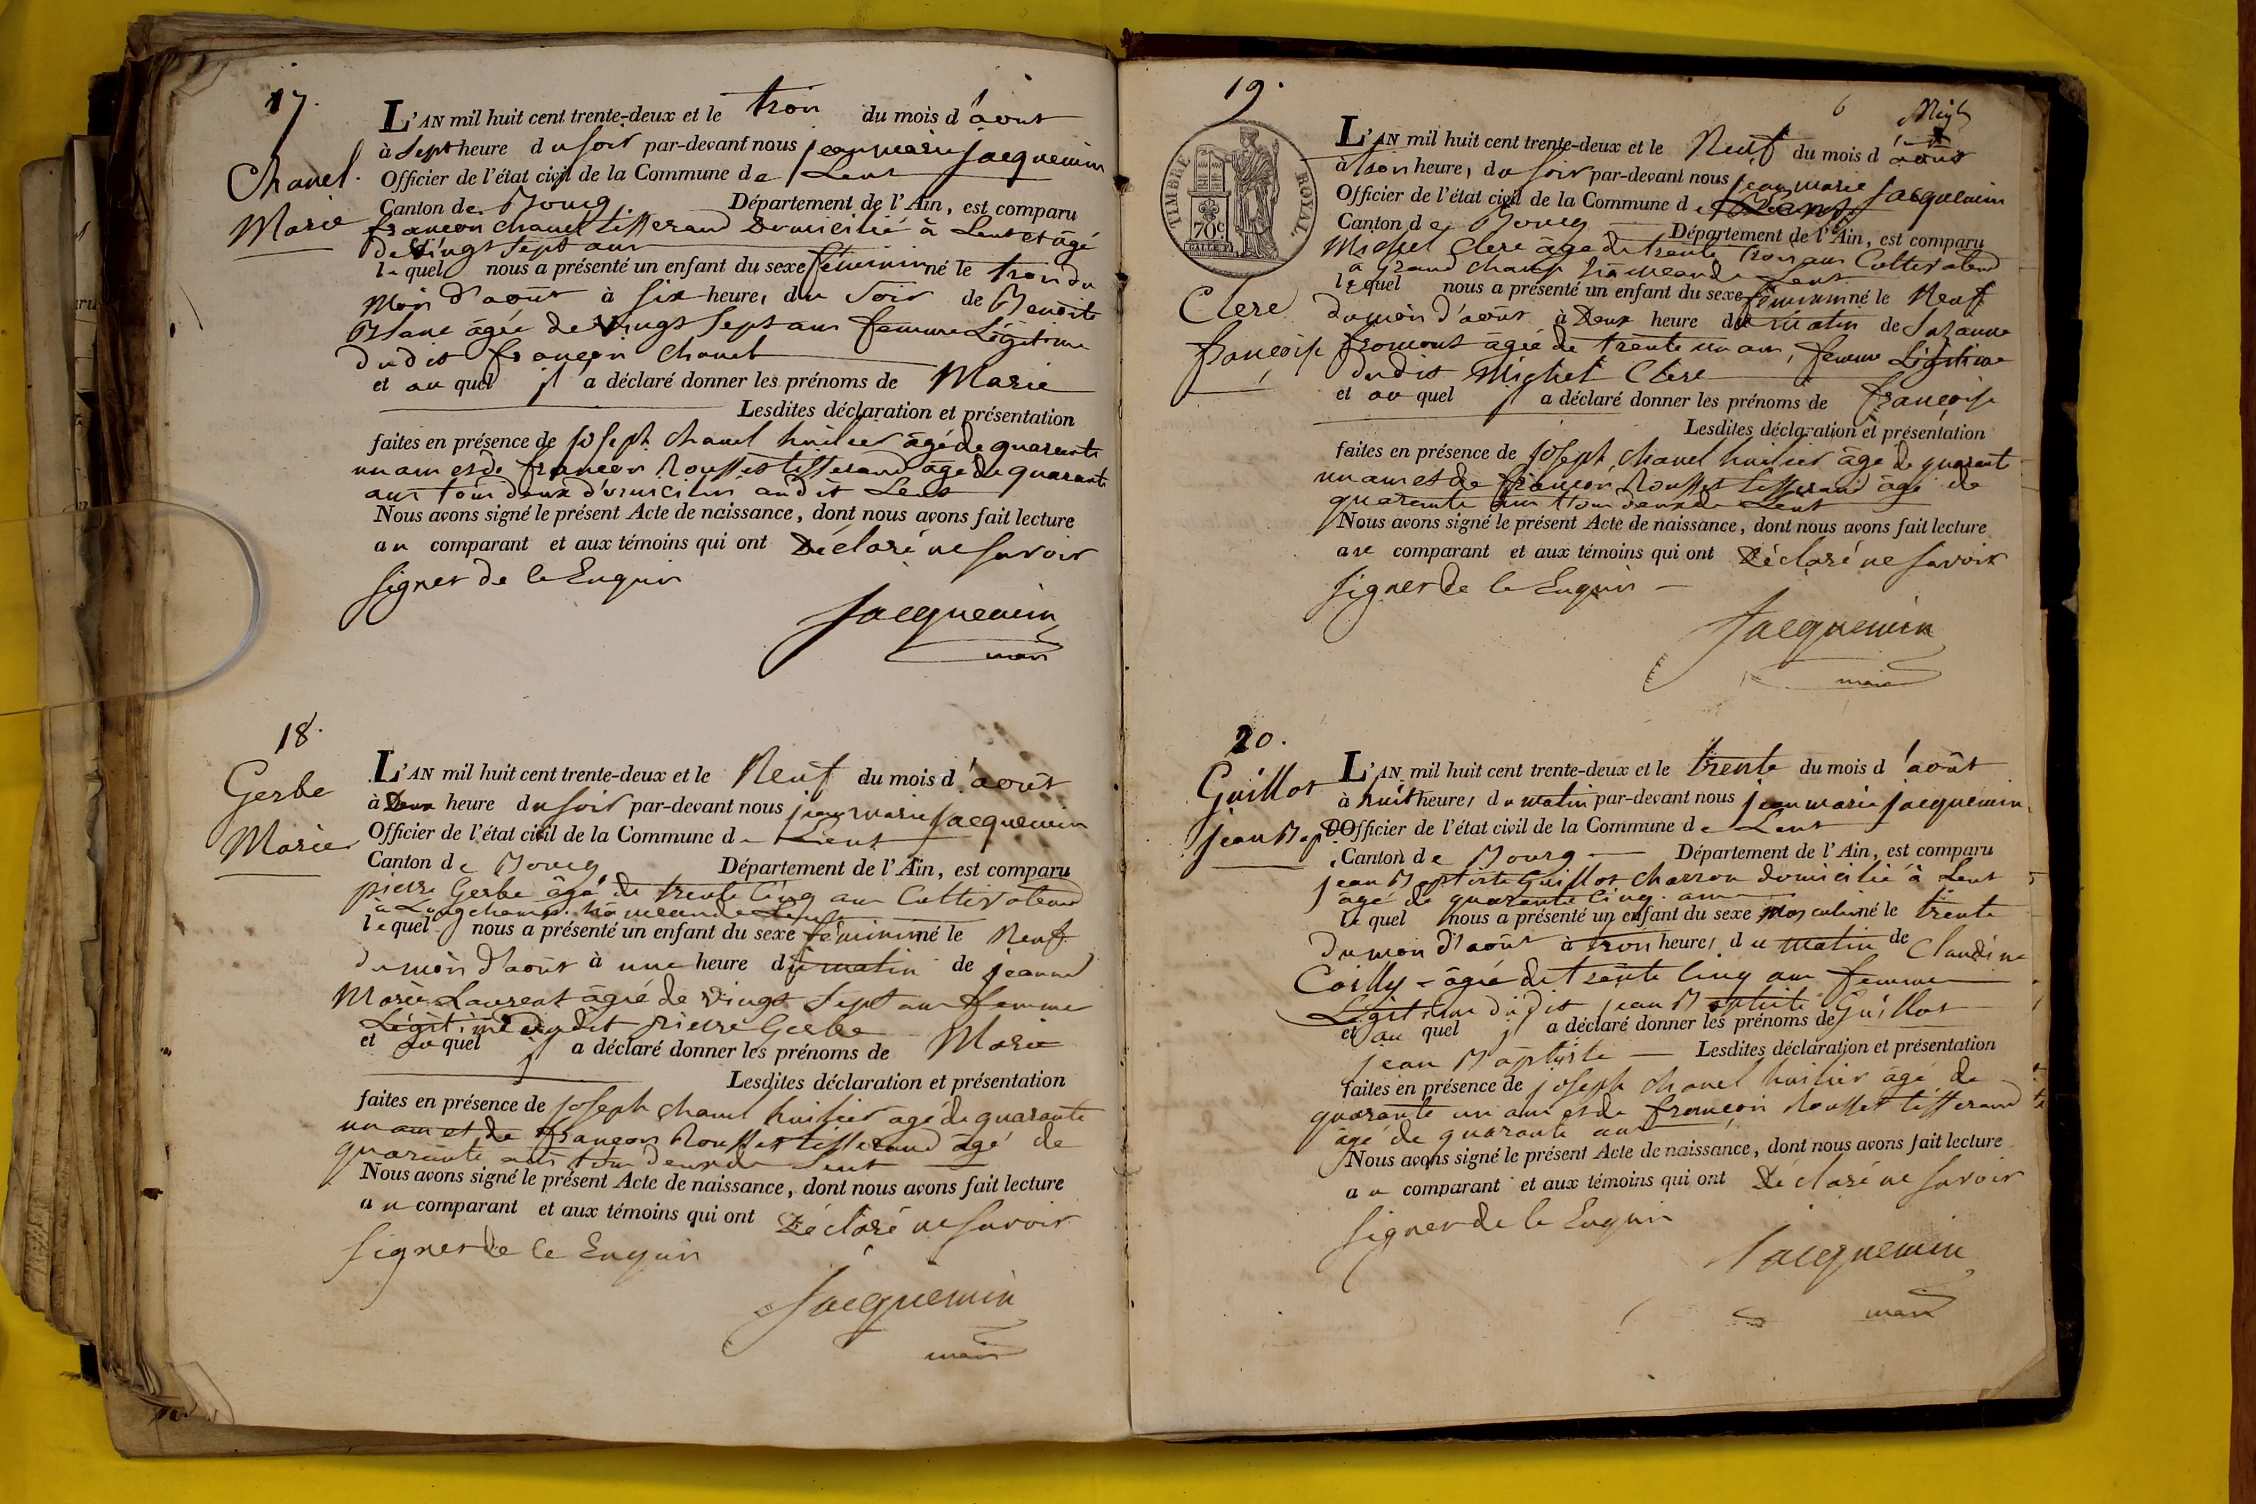 17.
Chanel
Marie
L'AN mil huit cent trente-deux et le trois du mois d'août
à Sept heure du soir par-devant nous jean marie jacquemin
Officier de l'état civil de la Commune de Lent
Canton de Bourg Département de l'Ain, est comparu
françois chanel tisserand Domicilié à Lent et âgé
de vingt sept ans
lequel nous a présenté un enfant du sexe féminin né le trois du
mois d'août à six heures du soir de Benoite
âgée de vingt sept ans femme Légitime
dudit françois Chanel
et auquel il a déclaré donner les prénoms de Marie
Lesdites déclaration et présentation
faites en présence de joseph chanel huilier âgé de quarante
un ans et de françois Rousset tisserand âgé de quarante
ans tous deux domiciliés audit Lent
Nous avons signé le présent Acte de naissance, dont nous avons fait lecture
au comparant et aux témoins qui ont Déclaré ne savoir
signer de ce Enquis
Jacquemin
maire
18.
Gerbe
Marie
L'AN mil huit cent trente-deux et le Neuf du mois d'août
à Deux heure du soir par-devant nous jean marie jacquemin
Officier de l'état civil de la Commune de Lent
Canton de Bourg Département de l'Ain, est comparu
pierre Gerbe âgé de trente cinq ans Cultivateur
à Longchamp hameau de Lent
lequel nous a présenté un enfant du sexe féminin né le Neuf
du mois d'août à une heure du matin de jeanne
Marie Laurent âgée de vingt sept ans femme
Légitime dudit pierre Gerbe
et auquel il a déclaré donner les prénoms de Marie
Lesdites déclaration et présentation
faites en présence de joseph chanel huilier agé de quarante
un ans et de françois Rousset tisserand âgé de
quarante ans tous deux de Lent
Nous avons signé le présent Acte de naissance, dont nous avons fait lecture
au comparant et aux témoins qui ont Déclaré ne savoir
signer de ce Enquis
Jacquemin
maire
19.
6
TIMBRE ROYAL
70c
Clere
françoise
L'AN mil huit cent trente-deux et le Neuf du mois d'août
à trois heures du soir par-devant nous jean marie jacquemin
Officier de l'état civil de la Commune de
Canton de Bourg Département de l'Ain, est comparu
Michel Clere âgé de trente trois ans Cultivateur
à Grand champ hameau de Lent
lequel nous a présenté un enfant du sexe féminin né le Neuf
du mois d'août à Deux heure du matin de Suzanne
fromont âgée de trente un ans, femme Légitime
dudit Michel Clere
et auquel il a déclaré donner les prénoms de françoise
Lesdites déclaration et présentation
faites en présence de joseph chanel huilier âgé de quarante
un ans et de françois Rousset tisserand âgé de
quarente ans tous deux de Lent
Nous avons signé le présent Acte de naissance, dont nous avons fait lecture
au comparant et aux témoins qui ont Déclaré ne savoir
signer de ce Enquis
Jacquemin
maire
20.
Guillot
jean Bapt
L'AN mil huit cent trente-deux et le trente du mois d'août
à huit heures du matin par-devant nous jean marie jacquemin
Officier de l'état civil de la Commune de Lent
Canton de Bourg Département de l'Ain, est comparu
jean Baptiste Guillot charron domicilié à Lent
âgé de quarante cinq ans
lequel nous a présenté un enfant du sexe Masculin né le trente
du mois d'août à trois heures du matin de Claudine
Coilly âgée de trente cinq ans femme
Légitime dudit jean Baptiste Guillot
et au quel il a déclaré donner les prénoms de
jean Baptiste Lesdites déclaration et présentation
faites en présence de joseph chanel huilier âgé de
quarante un ans et de françois Rousset tisserand
âgé de quarante ans
Nous avons signé le présent Acte de naissance, dont nous avons fait lecture
au comparant et aux témoins qui ont Déclaré ne savoir
signer de ce Enquis
Jacquemin
maire